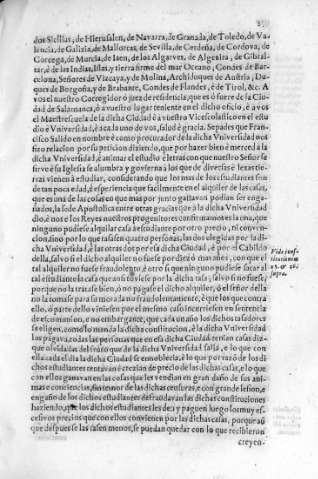 dos Sicilias, de Hierusalen, de Navarra, de Granada, de Toledo, de Va-
lencia, de Galizia, de Mallorcas, de Sevilla, de Cerdeña, de Cordova, de
Corcega, de Murcia, de Iaen, de los Algarves, de Algezira, de Gibral-
tar, è de las Indias, Islas, y tierra firme del mar Oceano, Condes de Bar-
celona, Señores de Vizcaya, y de Molina, Archiduques de Austria, Du-
ques de Borgoña, y de Brabante, Condes de Flandes, è de Tirol, &c. A
vos el nuestro Corregidor ò juez de residencia, que es ò fuere de la Ciu-
dad de Salamanca, ò a vuestro lugar teniente en el dicho oficio, è a vos
el Maestrescuela de la dicha Ciudad è a vuestro Vicescolastico en el estu
dio e Vniversidad, è a cada uno de vos, salud è gracia. Sepades que Fran-
cisco Salido en nombre è como procurador de la dicha Vniversidad nos
fizo relacion por su peticion diziendo, que por hazer bien è merced a la
dicha Vniversidad, è animar el estudio è letras con que nuestro Señor se
sirve è su Iglesia se alumbra y govierna à los que de diversas è
vias vienen à estudiar, considerando que los mas de los estudiantes son
de tan poca edad, è esperiencia que facilmente en el alquiler de las casas,
que es una de las cosas en que mas por junto gastavan podian ser enga-
ñados, la Sede Apostolica entre otras gracias que à la dicha Vniversidad
diò, è nos è los Reyes nuestros progenitores confirmamos es la una, que
ninguno pudiese alquilar casa à estudiante por otro precio, ni conven-
cion, sino por lo que tasasen quatro personas, las dos elegidas por la di-
cha Vniversidad, è las otras dos por essa dicha Ciudad, è por el Cabildo
della, salvo si el dicho alquiler no fuese por diez ò mas años, con que el
tal alquiler no fuese fraudolento, è otro si que ninguno pudiese sacar al
tal estudiante la casa que ansi toviese por la dicha tasa, salvo si no fuese,
porque no la tratase bien, ò no pagase el dicho alquiler, ò el señor della
no la tomase para su morada no fraudolentamente, è que los que contra
ello, ò parte dello viniesen por el mesmo caso incurriesen en sentencia
de excomunion, e no embargante, que cada un año los dichos tasadores
se eligen, como lo manda la dicha constitucion, è la dicha Vniversidad
los pagava, todas las personas que en essa dicha Ciudad tenian casas diz-
que olvidadas del fruto que de la dicha Vniversidad salia, e lo que con
ella cada el dia la dicha Ciudad se ennoblecia, è lo que por razo de los di
chos estudiantes rentavan è crezian de precio las casas del estudio, e lo que
con ellos ganavan en las cosas que les vendian en gran daño de sus ani-
mas e conciencias, sin temor de las dichas censuras, e con grande lesion, e
engaño de los dichos estudiantes defraudavan las dichas constituciones
haziendo, que los dichos estudiantes les den y paguen luego los muy es-
cesivos precios que con ellos convienen por las dichas casas, porque aũ
que despues se las tasen menos, se puedan quedar con lo que recibieron
creyen-
Vide